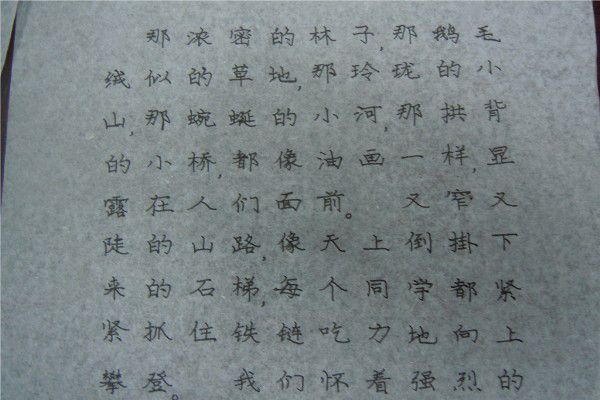 那浓密的林子,那鹅毛
绒似的草地,那玲珑的小
山,那蜿蜒的小河,那拱背
的小桥,都像油画一样,显
露在人们面前。 又窄又
陡的山路,像天上倒掛下
来的石梯,每个同学都紧
紧抓住铁链吃力地向上
攀登。 我们怀着强烈的